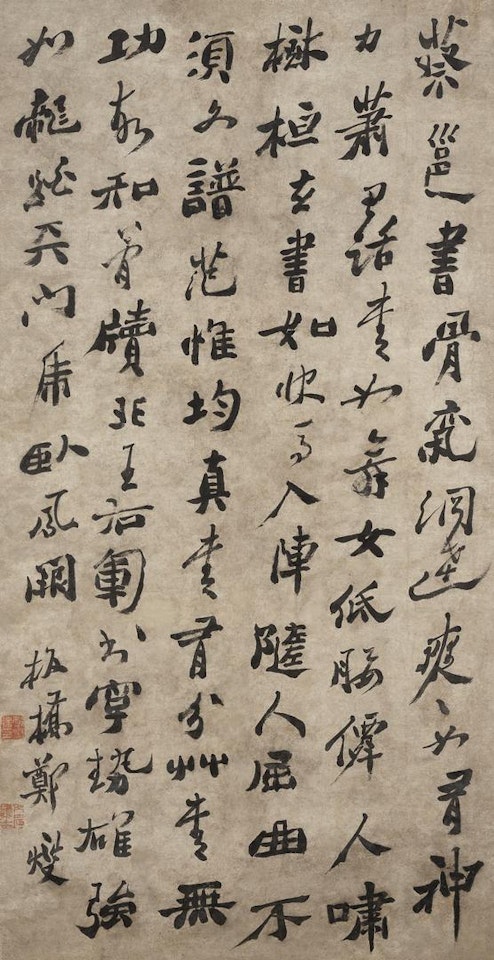 蔡邕書骨氣洞達爽〻如有神
力蕭思話書如舞女低腰僊人嘯
樹桓玄書如快馬入陣隨人屈曲不
須文譜范惟均真書有分艸書無
功故知簡牘非王右軍書字勢雄強
如龍跳天門虎臥鳳闕
板橋鄭燮